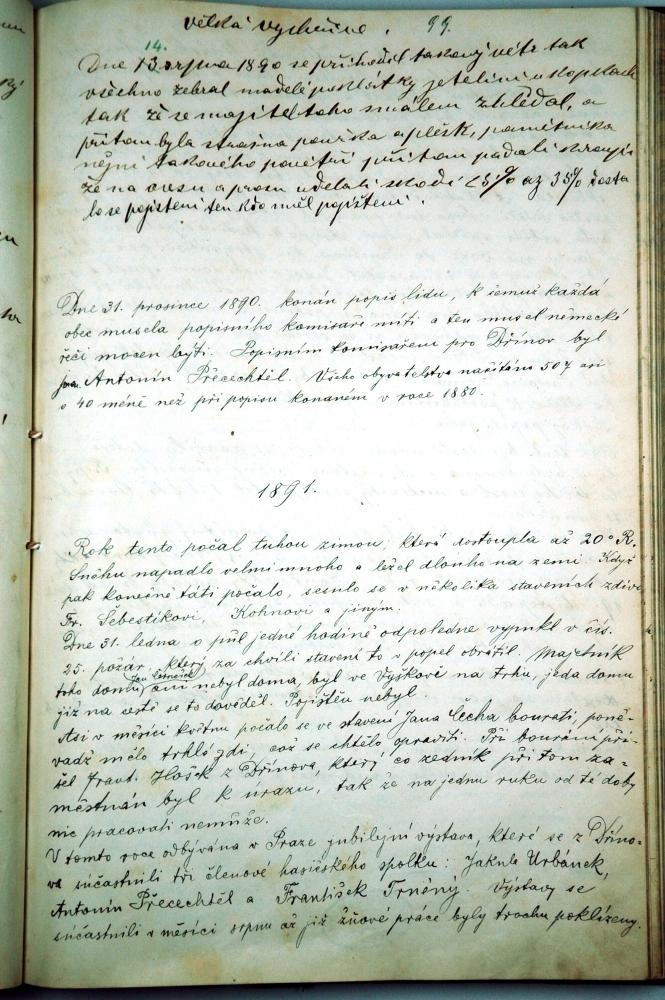 velká vychřice. 99.
14.
Dne 13 srpna 1890 se přihodil takový vétr tak
všechno žebral madelé poskládky jetelini u kopkach
tak že se majitel toho málem zhlédal, a
přitom byla strašna bouřka a plešk, pamětnika
nejni takového povětří přitom padali kroupi
že na ovsu a prosu udělali škodi 25% až 35% dosta
lo se pojisteni ten kdo měl pojišteni.
Dne 31. prosince 1890. konán popis lidu, k čemuž každá
obec musela popisního komisaře míti a ten musel německé
řeči mocen býti. Popisním komisařem pro Dřínov byl
pan Antonín Přecechtěl. Všeho obyvatelstva načítáno 507 asi
o 40 méně než při popisu konaném v roce 1880.
1891.
Rok tento počal tuhou zimou, která dostoupla až 20° R.
Sněhu napadlo velmi mnoho a ležel dlouho na zemi. Když
pak konečně táti počalo, sesulo se v několika staveních zdivo
Fr. Šebestíkovi, Kohnovi a jiným.
Dne 31. ledna o půl jedné hodině odpoledne vypukl v čís.
25. požár, který za chvíli stavení to v popel obrátil. Majetník
toho domu Jan nebyl doma, byl ve Vyškově na trhu, jeda domu
již na cestě se to dověděl. Pojištěn nebyl.
Asi v měsíci květnu počalo se ve stavení Jana Čecha bourati, poně-
vadž mělo trhlé zdi, což se chtělo opraviti. Při bourání při-
šel Frant. Hošek z Dřínova, který co zedník při tom za-
městnán byl k úrazu, tak že na jednu ruku od té doby
nic pracovati nemůže.
V tomto roce odbývána v Praze jubilejní výstava, které se z Dříno-
va súčastnili tři členové hasičského spolku: Jakub Urbánek,
Antonín Přecechtěl a František Trněný. Výstavy se
súčastnili v měsíci srpnu až již žňové práce byly trochu poklizeny.